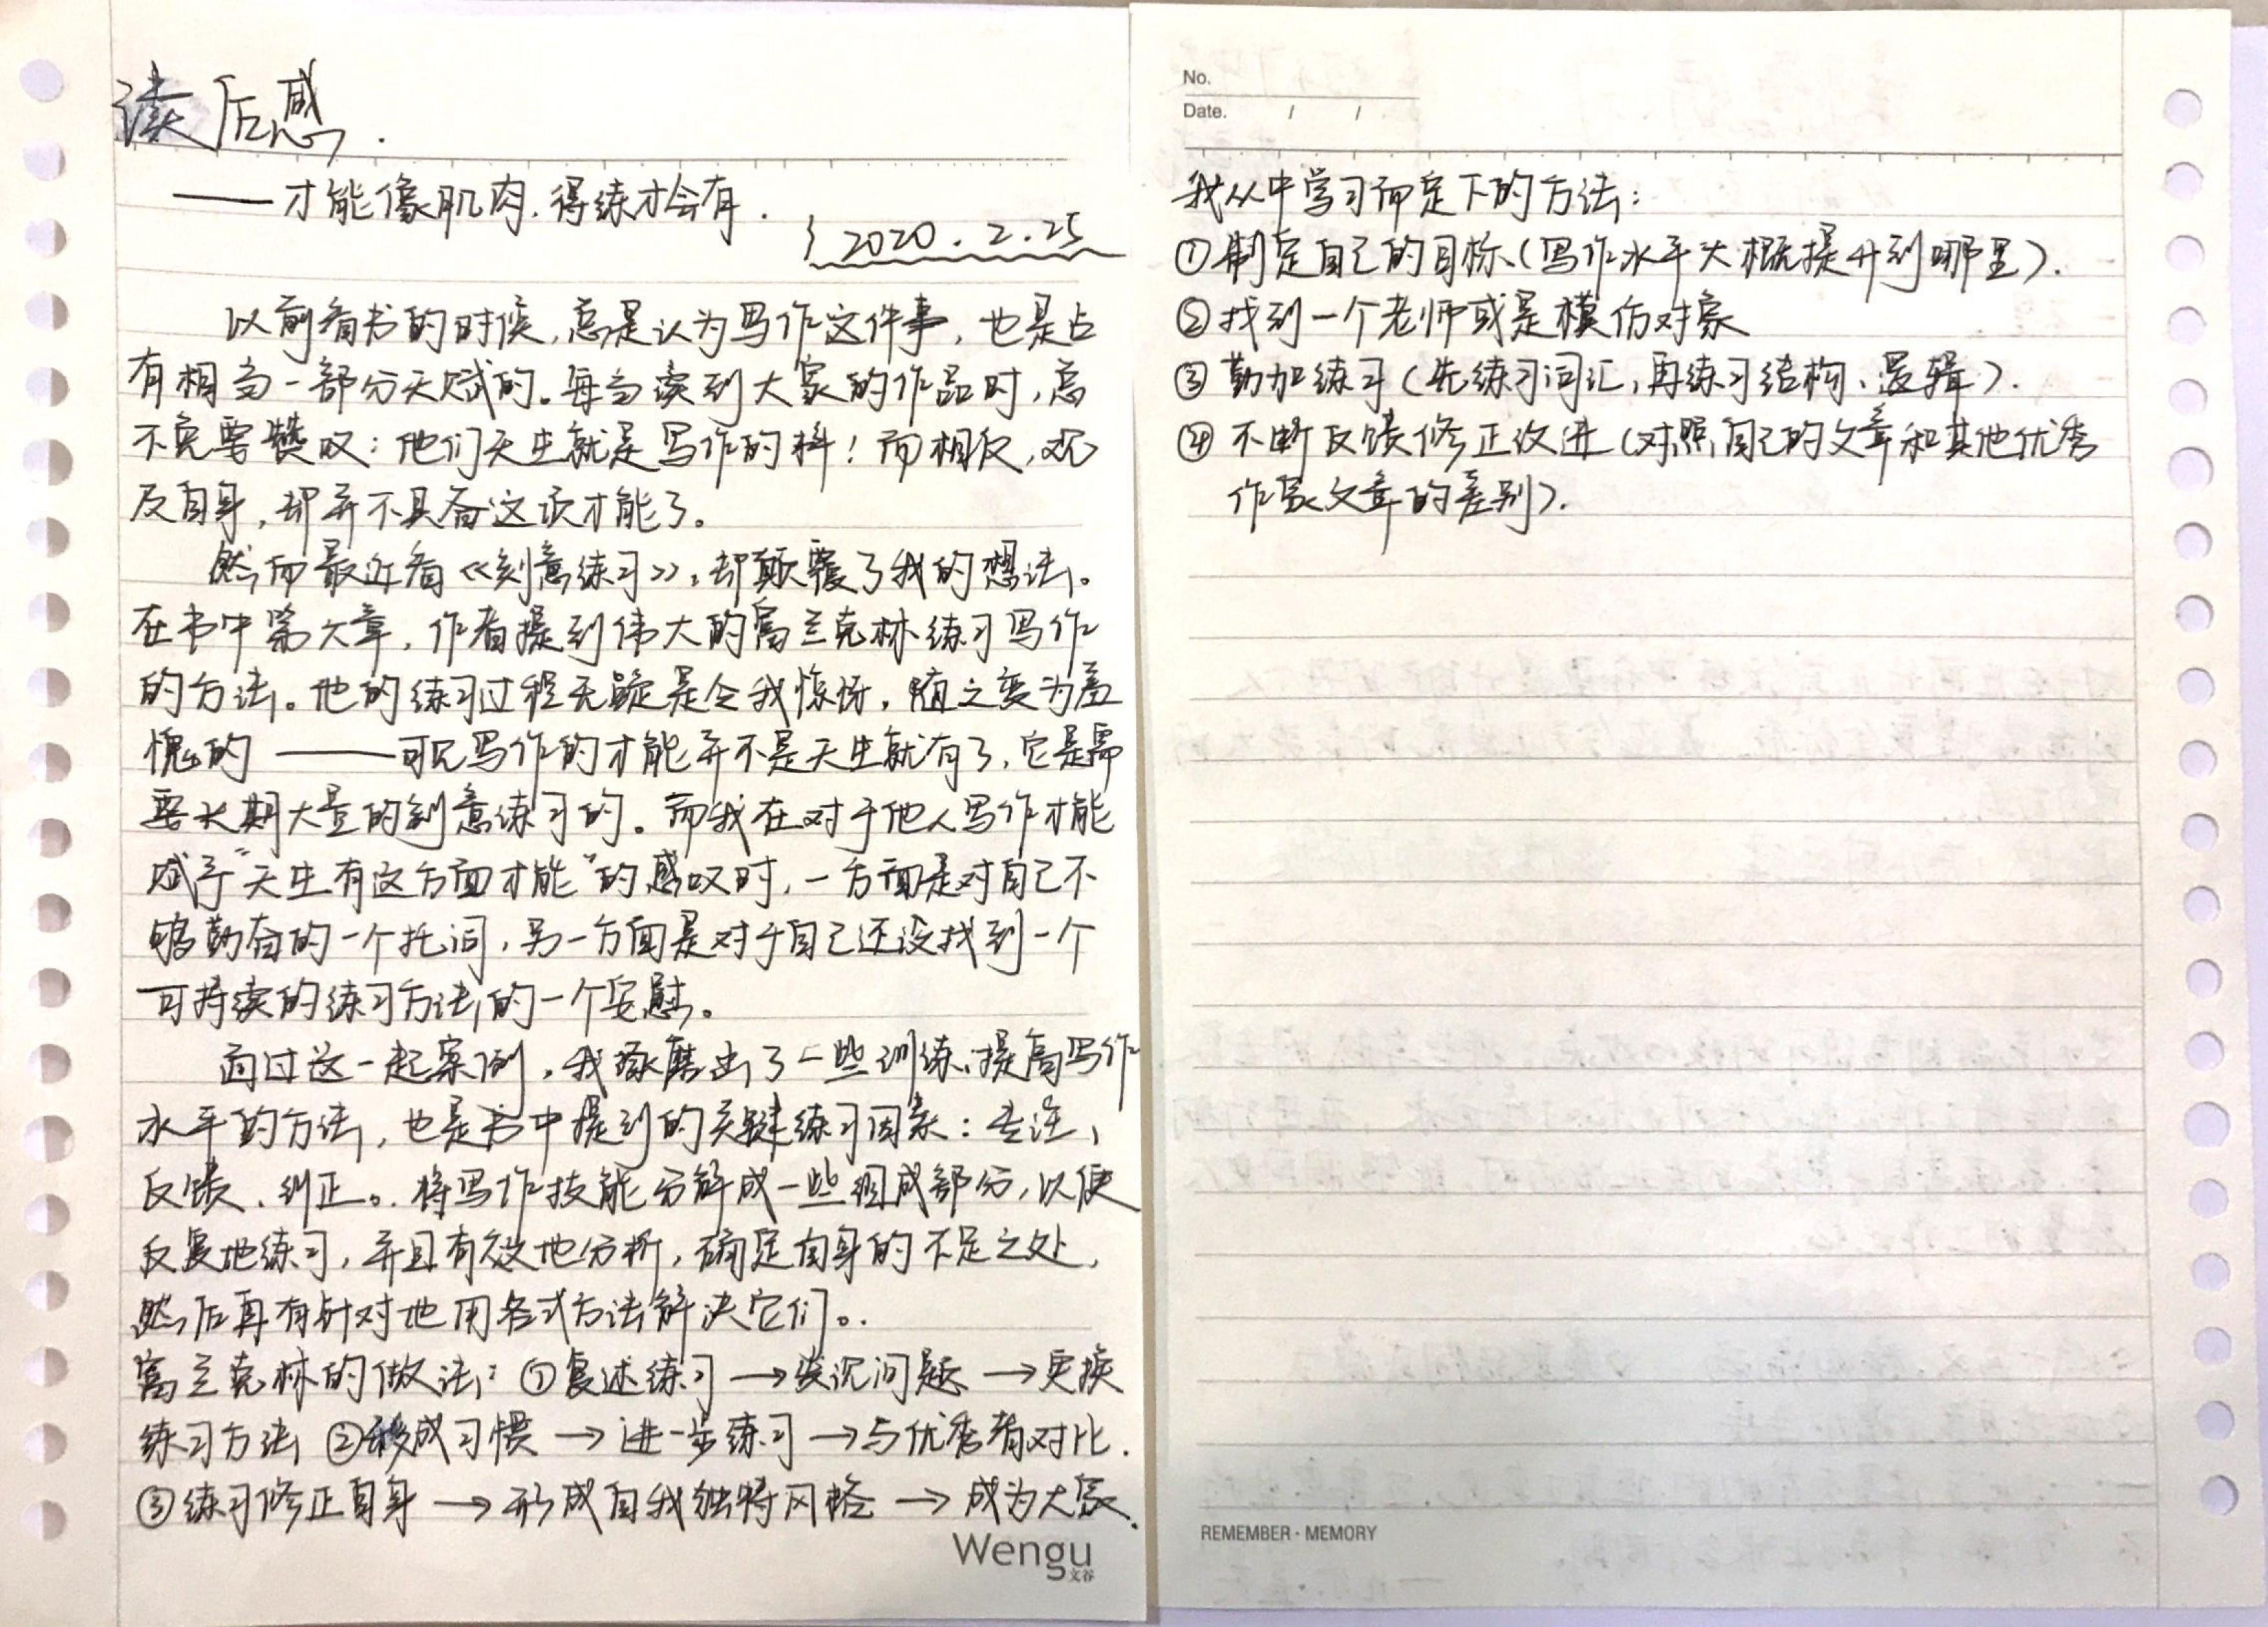 读后感.
——才能像肌肉,得练才会有.
2020.2.25
以前看书的时候,总是认为写作这件事,也是占
有相当一部分天赋的。每当读到大家的作品时,总
不免要赞叹:他们天生就是写作的料!而相反,观
及自身,却并不具备这项才能了。
然而最近看《刻意练习》,却颠覆了我的想法。
在书中第六章,作者提到伟大的富兰克林练习写作
的方法。他的练习过程无疑是令我惊讶,随之变为羞
愧的——可见写作的才能并不是天生就有了,它是需
要长期大量的刻意练习的。而我在对于他人写作才能
赋予“天生有这方面才能”的感叹时,一方面是对自己不
够勤奋的一个托词,另一方面是对于自己还没找到一个
可持续的练习方法的一个安慰。
而过这一起案例,我琢磨出了一些训练、提高写作
水平的方法,也是书中提到的关键练习因素:专注、
反馈、纠正。将写作技能分解成一些组成部分,以便
反复地练习,并且有效地分析,确定自身的不足之处,
然后再有针对地用各式方法解决它们。
富兰克林的做法:①复述练习→发现问题→更换
练习方法 ②形成习惯→进一步练习→与优秀者对比.
③练习修正自身→形成自我独特风格→成为大家.
Wengu
文谷
No.
Date. / /
我从中学习而定下的方法:
①制定自己的目标(写作水平大概提升到哪里).
②找到一个老师或是模仿对象
③勤加练习(先练习词汇,再练习结构、逻辑).
④不断反馈修正改进(对照自己的文章和其他优秀
作家文章的差别).
REMEMBER · MEMORY